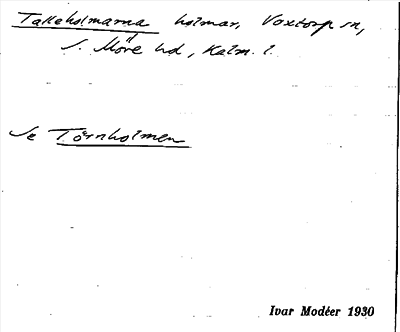 Takeholmarna holmar, Voxtorp sn,
S. Möre hd, Kalm. l.
Se Törnholmen
Ivar Modéer 1930